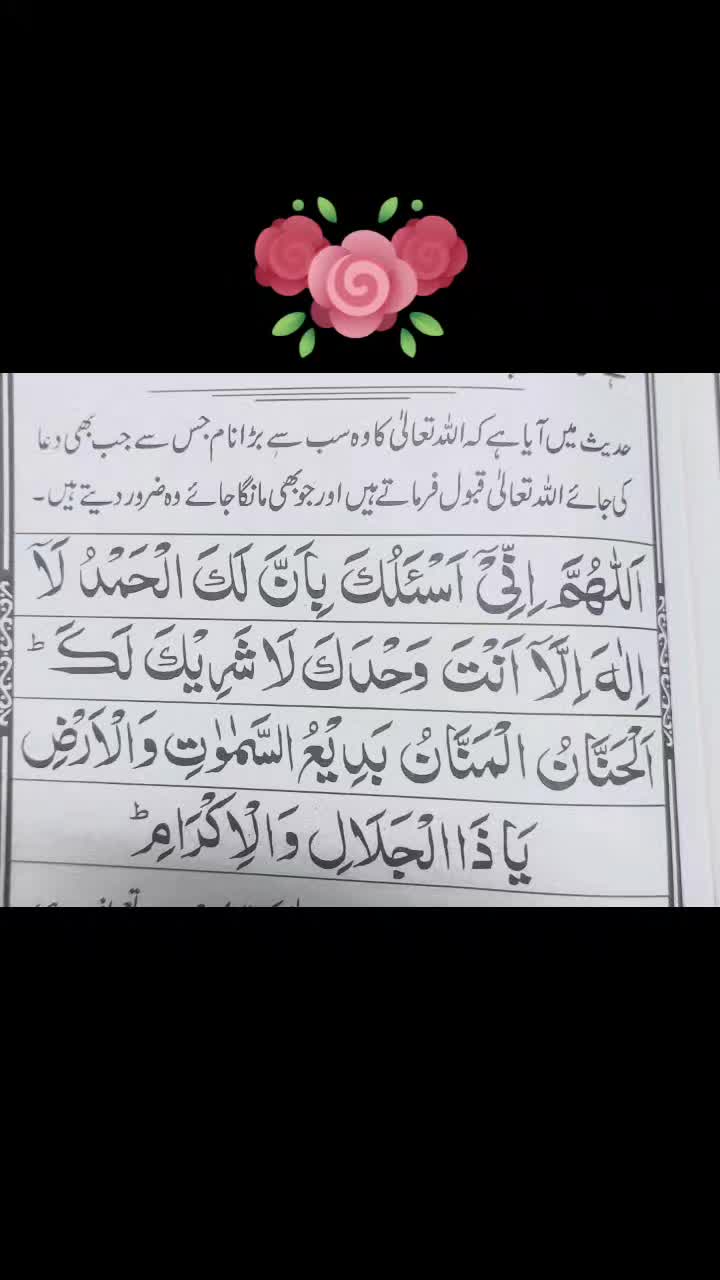 حدیث میں آیا ہے کہ اللہ تعالیٰ کا وہ سب سے بڑا نام جس سے جب بھی دعا
کی جائے اللہ تعالیٰ قبول فرماتے ہیں اور جو بھی مانگا جائے وہ ضرور دیتے ہیں۔
اَللّٰهُمَّ اِنِّیْٓ اَسْئَلُكَ بِاَنَّ لَكَ الْحَمْدُ لَآ
اِلٰهَ اِلَّآ اَنْتَ وَحْدَكَ لَا شَرِیْكَ لَكَ ؕ
اَلْحَنَّانُ الْمَنَّانُ بَدِیْعُ السَّمٰوٰتِ وَالْاَرْضِ
یَا ذَا الْجَلَالِ وَالْاِكْرَامِ ؕ